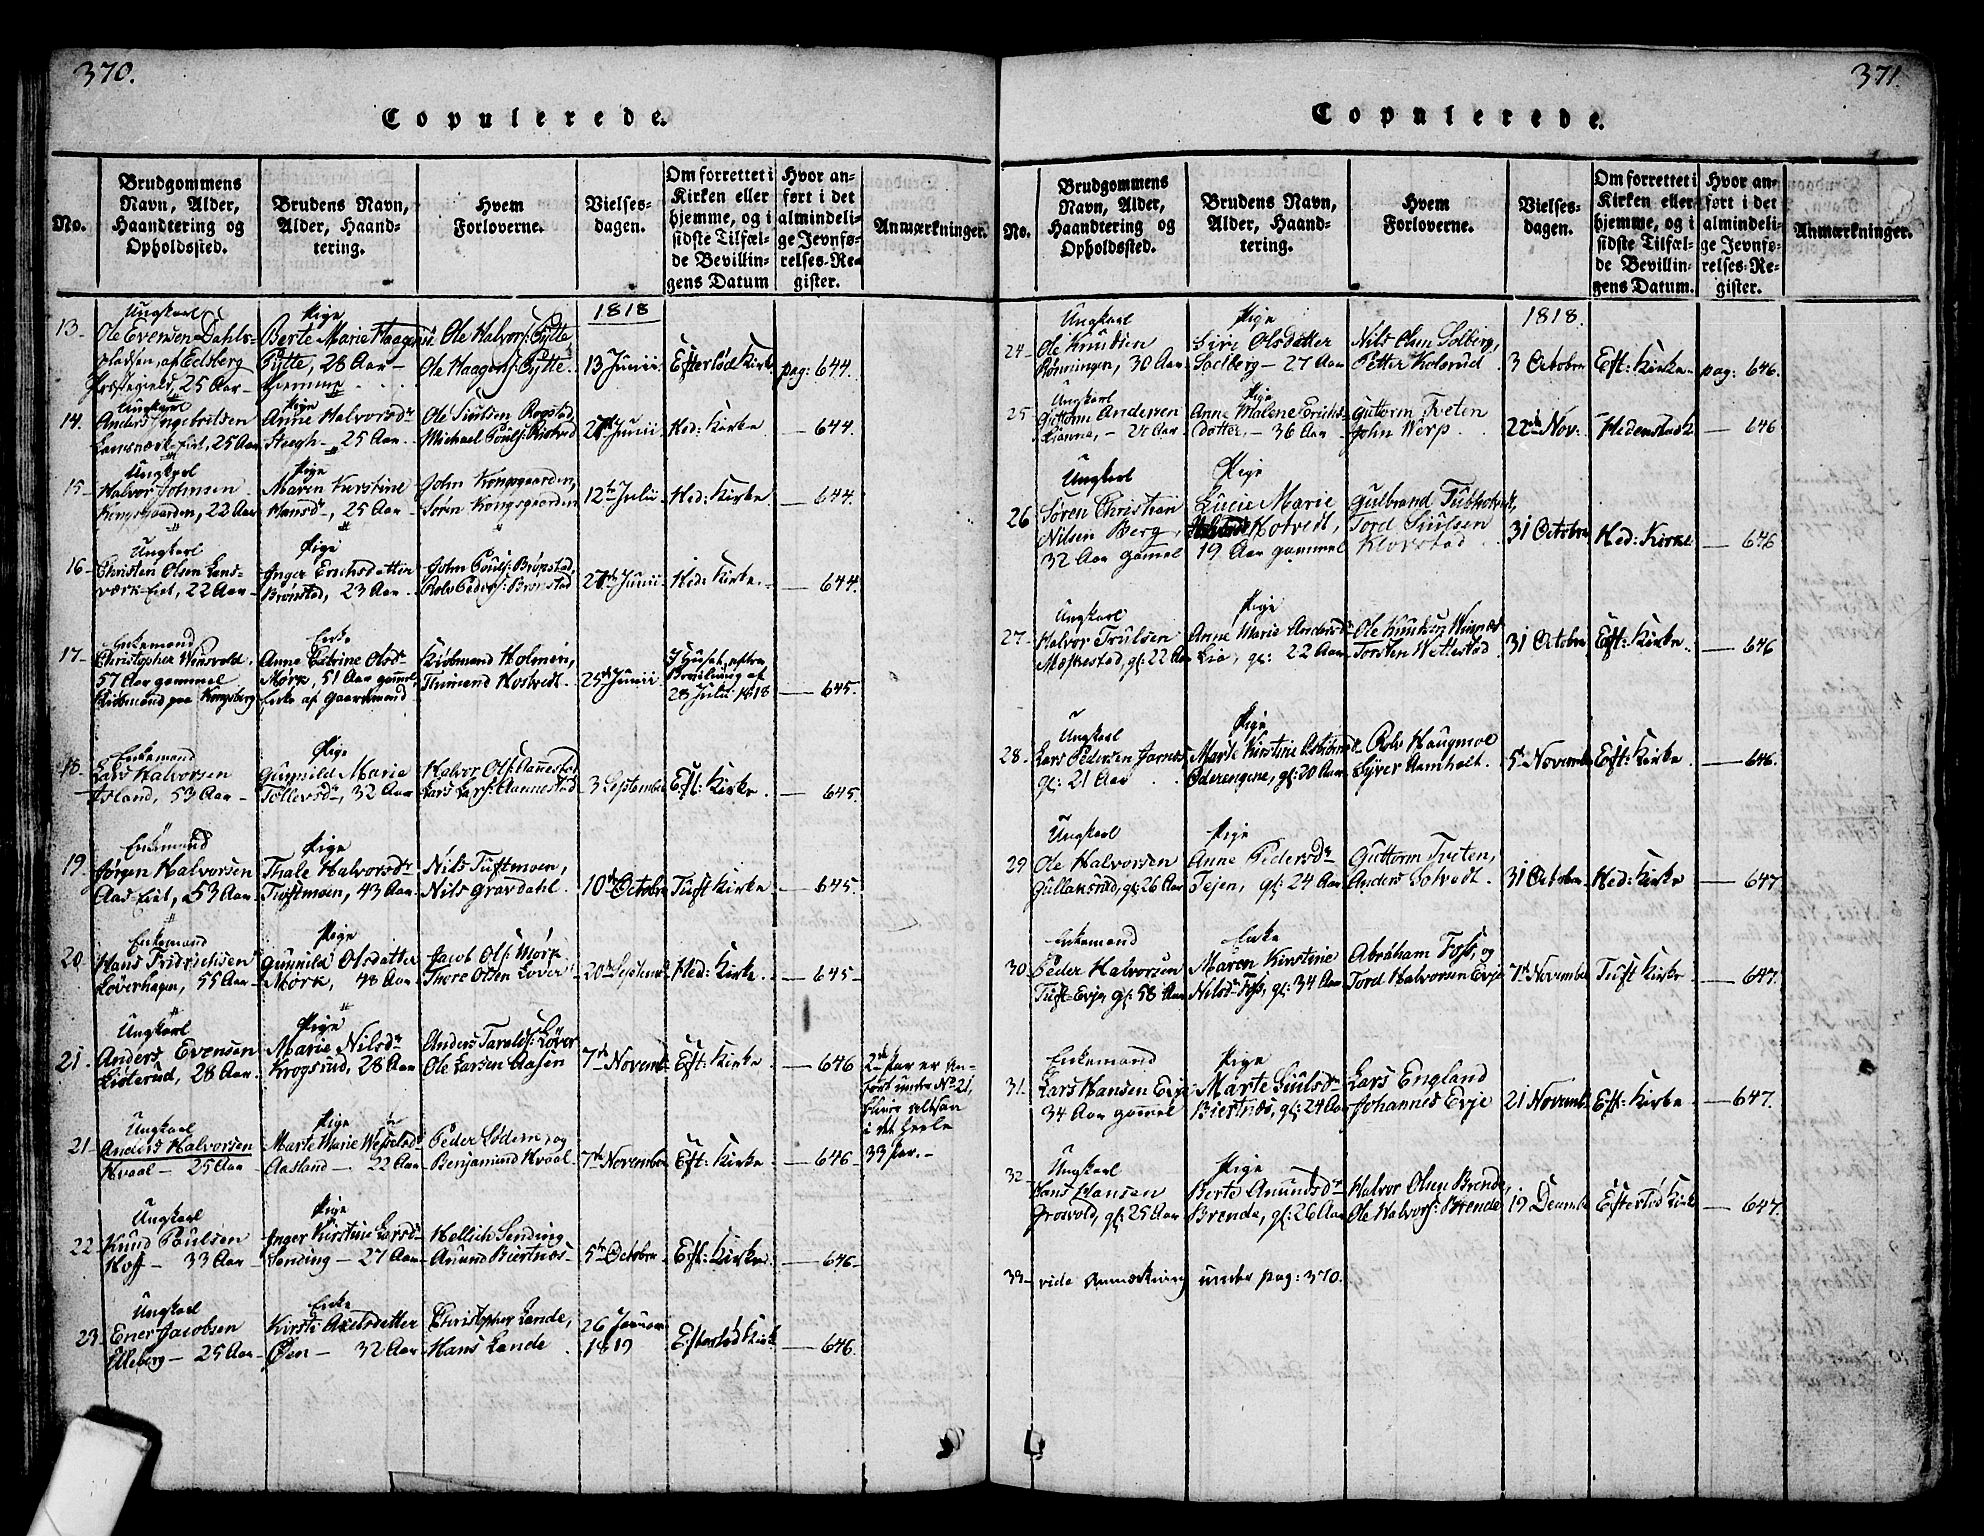 370.
Copulerede.
No.
Brudgommens
Navn, Alder,
Haandtering og
Opholdssted.
Brudens Navn,
Alder, Haand-
tering.
Hvem
Forloverne.
Vielses-
dagen.
Om forrettet i
Kirken eller
hjemme, og i
sidste Tilfæl-
de Bevillin-
gens Datum
Hvor an-
ført i det
almindeli-
ge Jevnfø-
relses-Re-
gister.
Anmærkninger.
1818
13-
Ungkarl
Ole Evensen Dahls-
af Edsberg
Præstegield, 25 Aar
Pige
Berte Marie Haagens
Pytte, 28 Aar -
hiemme
Ole Halvors: Pytte,
Ole Haagens: Pytte.
13 Junii.
Efterlød Kirke
pag: 644.
14.
Ungkarl
Anders Ingebretsen
Eiet, 25 Aar
Pige
Anne Halvorsdr
- 25 Aar
Ole Rogstad,
Michael Pouls: Rostvad
Junii
Hed: Kirke
- 644.
15-
Ungkarl
Halvor Johnsen
Kongsgaarden, 22 Aar
Pige
Maren Kirstine
Hansdr, 25 Aar
John Kongsgaarden,
Søren Kongsgaarden
12te Julii
Hed: Kirke
- 644.
16-
Ungkarl
Christen Olsen Lans-
værk-Eiet, 22 Aar -
Pige
Inger Erichsdatter
Brønstad, 23 Aar.
John Pouls: Brønstad,
Rolv Peders: Brønstad
Junii-
Hed: Kirke.
- 644.
17-
Enkemand
Christopher Winsvold.
57 Aar gammel
Kiøbmand paa Kongsberg
Enke
Anne Catrine Olsdr
Mørk, 51 Aar gaml,
Enke af Gaardmand
Kiøbmand Holmen,
Hostvedt.
25de Junii.
I Huset, efter
Bevilning af
28 Julii 1818
- 645.
18.
Enkemand
Lars Halvorsen
Island, 53 Aar -
Pige
Gunnild Marie
Tollevsdr, 32 Aar
Halvor Ols: Aannestad
Lars Lars: Aannestad
3 September
Eft: Kirke.
- 645.
19.
Enkemand
Jørgen Halvorsen
Aas-Eiet, 53 Aar -
Pige
Thale Halvorsdr
Tuftmoen, 43 Aar
Nils Tuftmoen,
Nils Gravdahl.
10de Octobr
Tuft Kirke
- 645
20.
Enkemand
Hans Fridrichsen
Løverhagen, 55 Aar -
Pige
Gunnild Olsdatter
Mørk, 48 Aar
Jacob Ols: Mørk
Thore Olsen Løver
20de Septemb
Hed: Kirke.
- 645-
21.
Ungkarl
Anders Evensen
Listerud, 28 Aar
Pige
Marie Nilsdr
Krogsrud, 28 Aar
Anders Taralds: Løver
Ole Larsen Aasen
7de Novemb
Eft: Kirke
- 646
2de Par er an-
ført under No 21,
bliver altsaa
i det heele
33 Par. -
21-
Ungkarl
Anders Halvorsen
Kvaal - 25 Aar
Pige
Marte Marie
Aasland - 22 Aar
Peder Lødem, og
Benjamin Kvaal
7de November
Eft: Kirke.
- 646-
22
Ungkarl
Knud Poulsen
Hoff - 33 Aar
Pige
Inger Kirstine Larsd
Sending - 27 Aar
Hellich Sending
Amund Biertnæs
5te Octobr
Eft: Kirke
- 646-
23
Ungkarl
Ener Jacobsen
Elleberg - 25 Aar
Enke
Kirsti Axelsdatter
Øen - 32 Aar
Christopher Lande,
Hans Lande
26 Januar
1819
Efterlød Kirke
- 646.
371.
Copulerede.
No.
Brudgommens
Navn, Alder,
Haandtering og
Opholdssted.
Brudens Navn,
Alder, Haand-
tering.
Hvem
Forloverne.
Vielses-
dagen.
Om forrettet i
Kirken eller
hjemme, og i
sidste Tilfæl-
de Bevillin-
gens Datum.
Hvor an-
ført i det
almindeli-
ge Jevnfø-
relses-Re-
gister.
Anmærkninger.
1818.
24-
Ungkarl
Ole Knudsen
Rønningen, 30 Aar
Pige
Sire Olsdatter
Soelberg - 27 Aar
Nils Solberg,
Petter Kolsrud
3 Octobr
Eft: Kirke
pag: 646.
25
Ungkarl
Guttorm Andersen
- 24 Aar
Pige
Anne Malene Erichs-
datter, - 36 Aar
Guttorm Tveten
John Werp.
22de Nov:
Hedenstad K
- 646
26
Ungkarl
Søren Christian
Nilsen Berg,
32 Aar gamel
Pige
Lucie Marie
Hotvedt,
19 Aar gammel
Gulbrand
Tord
Klovstad
31 Octobr
Hed: Kirke
- 646
27-
Ungkarl
Halvor Truelsen
Mæhrestad, gl: 22 Aar
Pige
Anne Marie Andersdr
Lia, gl: 22 Aar
Ole Knudsen
Torsten Wettestad
31 Octobr
Eft: Kirke
- 646
28-
Ungkarl
Lars Pedersen Jarnes
gl: 21 Aar
Pige
Marte Kirstine
Oderengene, gl: 20 Aar
Rolv Haugmoe
Syver Aamholt.
5te November
Eft: Kirke
- 646.
29
Ungkarl
Ole Halvorsen
Gullaksrud, gl: 26 Aar
Pige
Anne Pedersdr
Tejen, gl: 24 Aar
Guttorm Tveten,
Anders Solvedt.
31 Octobr
Hed: Kirke
- 647
30
Enkemand
Peder Halvorsen
Tuft-Evje, gl: 58 Aar
Enke
Maren Kirstine
Nilsdr Foss, gl: 34 Aar
Abraham Foss, og
Tord Halvorsen Evje
7de November
Tuft Kirke
- 647.
31.
Enkemand
Lars Hansen Evje
34 Aar gammel
Pige
Marte Juulsdr
Biertnæs, gl: 24 Aar
Lars England
Johannes Evje
21 Novemb
Eft: Kirke
- 647.
32-
Ungkarl
Hans Hansen
Grosvold, gl: 25 Aar
Pige
Berte Amundsdr
Brende, gl: 26 Aar
Halvor Olsen Brende,
Ole Halvors: Brende
19 Decemb
Efterlød Kirke
- 647.
33-
vide Anmærkning under pag: 370.